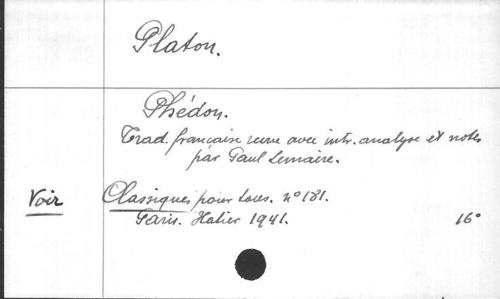 Platon.
Phédon.
Trad. française revue avec intr. analyse et notes
par Paul Lemaire.
Voir Classiques pour tous. n° 181.
Paris. Hatier 1941. 16°